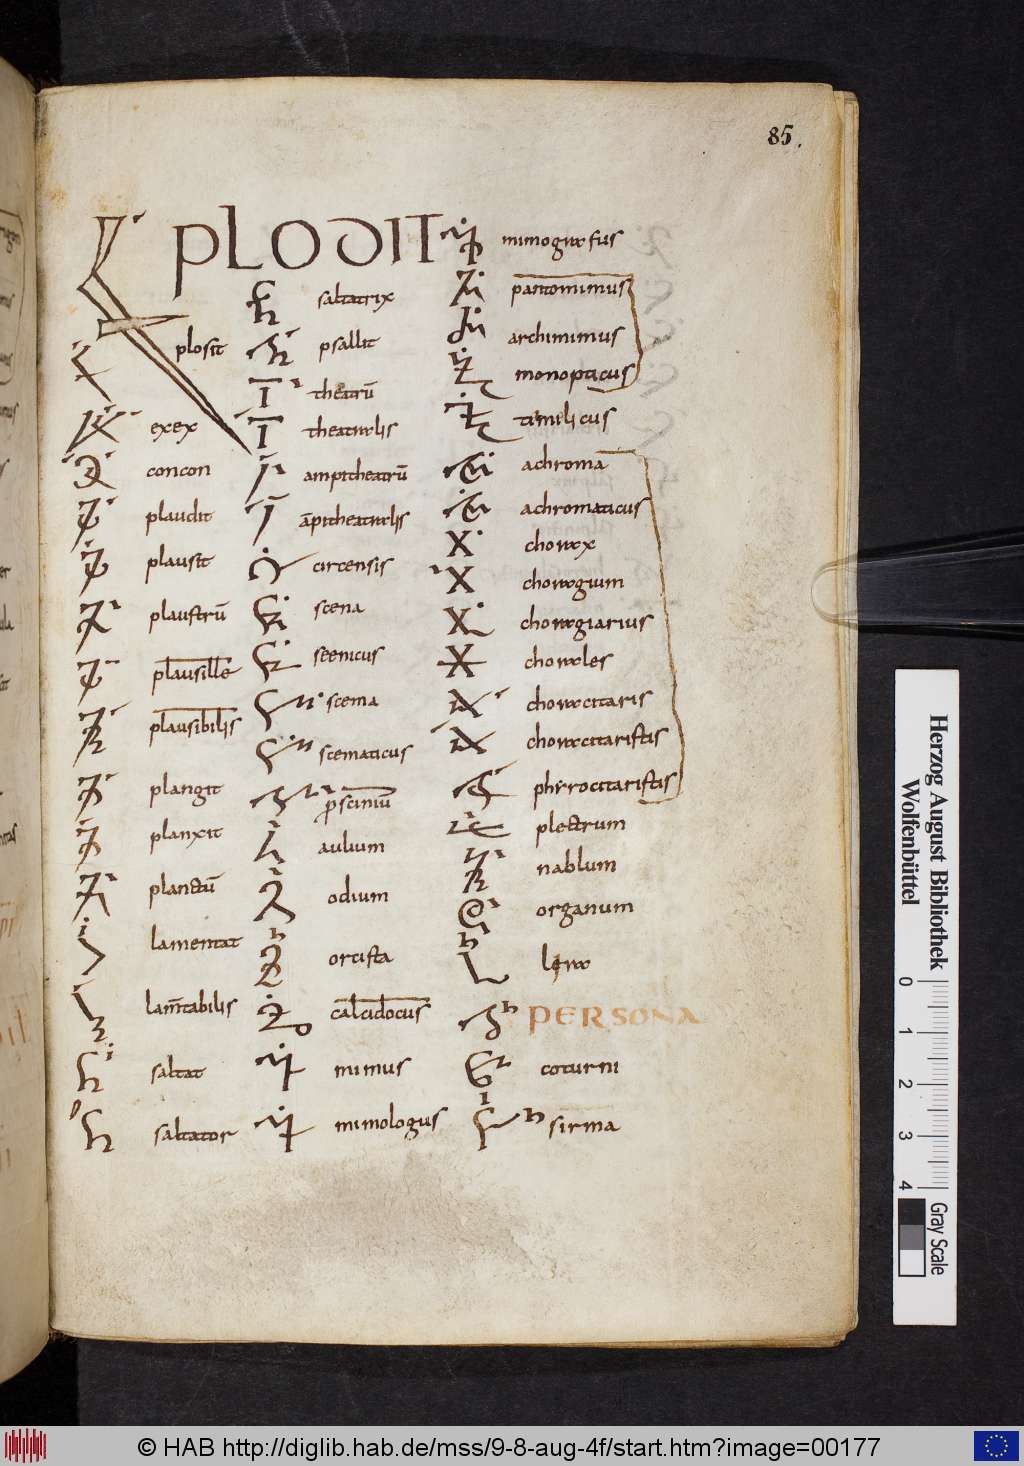 85.
PLODIT
plosit
exex
concon
plaudit
plausit
plaustrū
plausille
plausibilis
plangit
planxit
planctū
lamentat
lam̄tabilis
saltat
saltator
saltatrix
psallit
theatrū
theatralis
ampitheatrū
āpitheatralis
circensis
scena
scenicus
scema
scematicus
prosciniū
aulium
odium
orcista
calcidocus
mimus
mimologus
mimografus
pantomimus
archimimus
monopticus
timilicus
achroma
achromaticus
chorax
choragium
choragiarius
chorales
choracitaris
choracitaristis
phirrocitaristis
plectrum
nablum
organum
lęra
PERSONA
coturni
sirma
Herzog August Bibliothek
Wolfenbüttel
0 1 2 3 4
Gray Scale
© HAB http://diglib.hab.de/mss/9-8-aug-4f/start.htm?image=00177